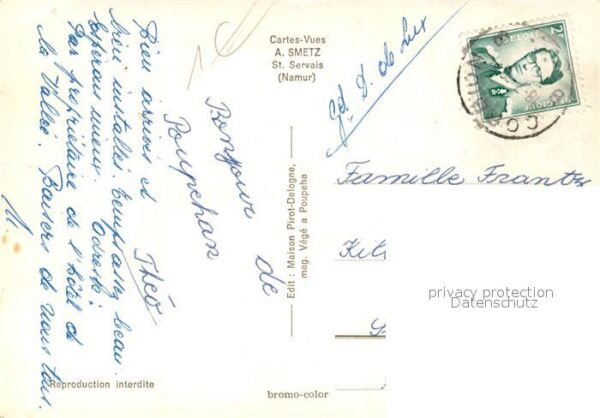 Bien arrivés et
bien installés. Temps assez beau.
Espérons mieux. Adresse:
Par propriétaire de l'hôtel de
la Vallée. Baisers de nous tous.
M.
Théo
Bonjour de
Poupehan
Cartes-Vues
A. SMETZ
St. Servais
(Namur)
Gd. D. de Lux
Edit : Maison Pirot-Delogne,
mag. Végé a Poupeha
2F
BELGIE-BELGIQUE
Famille Frantz
Reproduction interdite
bromo-color
privacy protection
Datenschutz